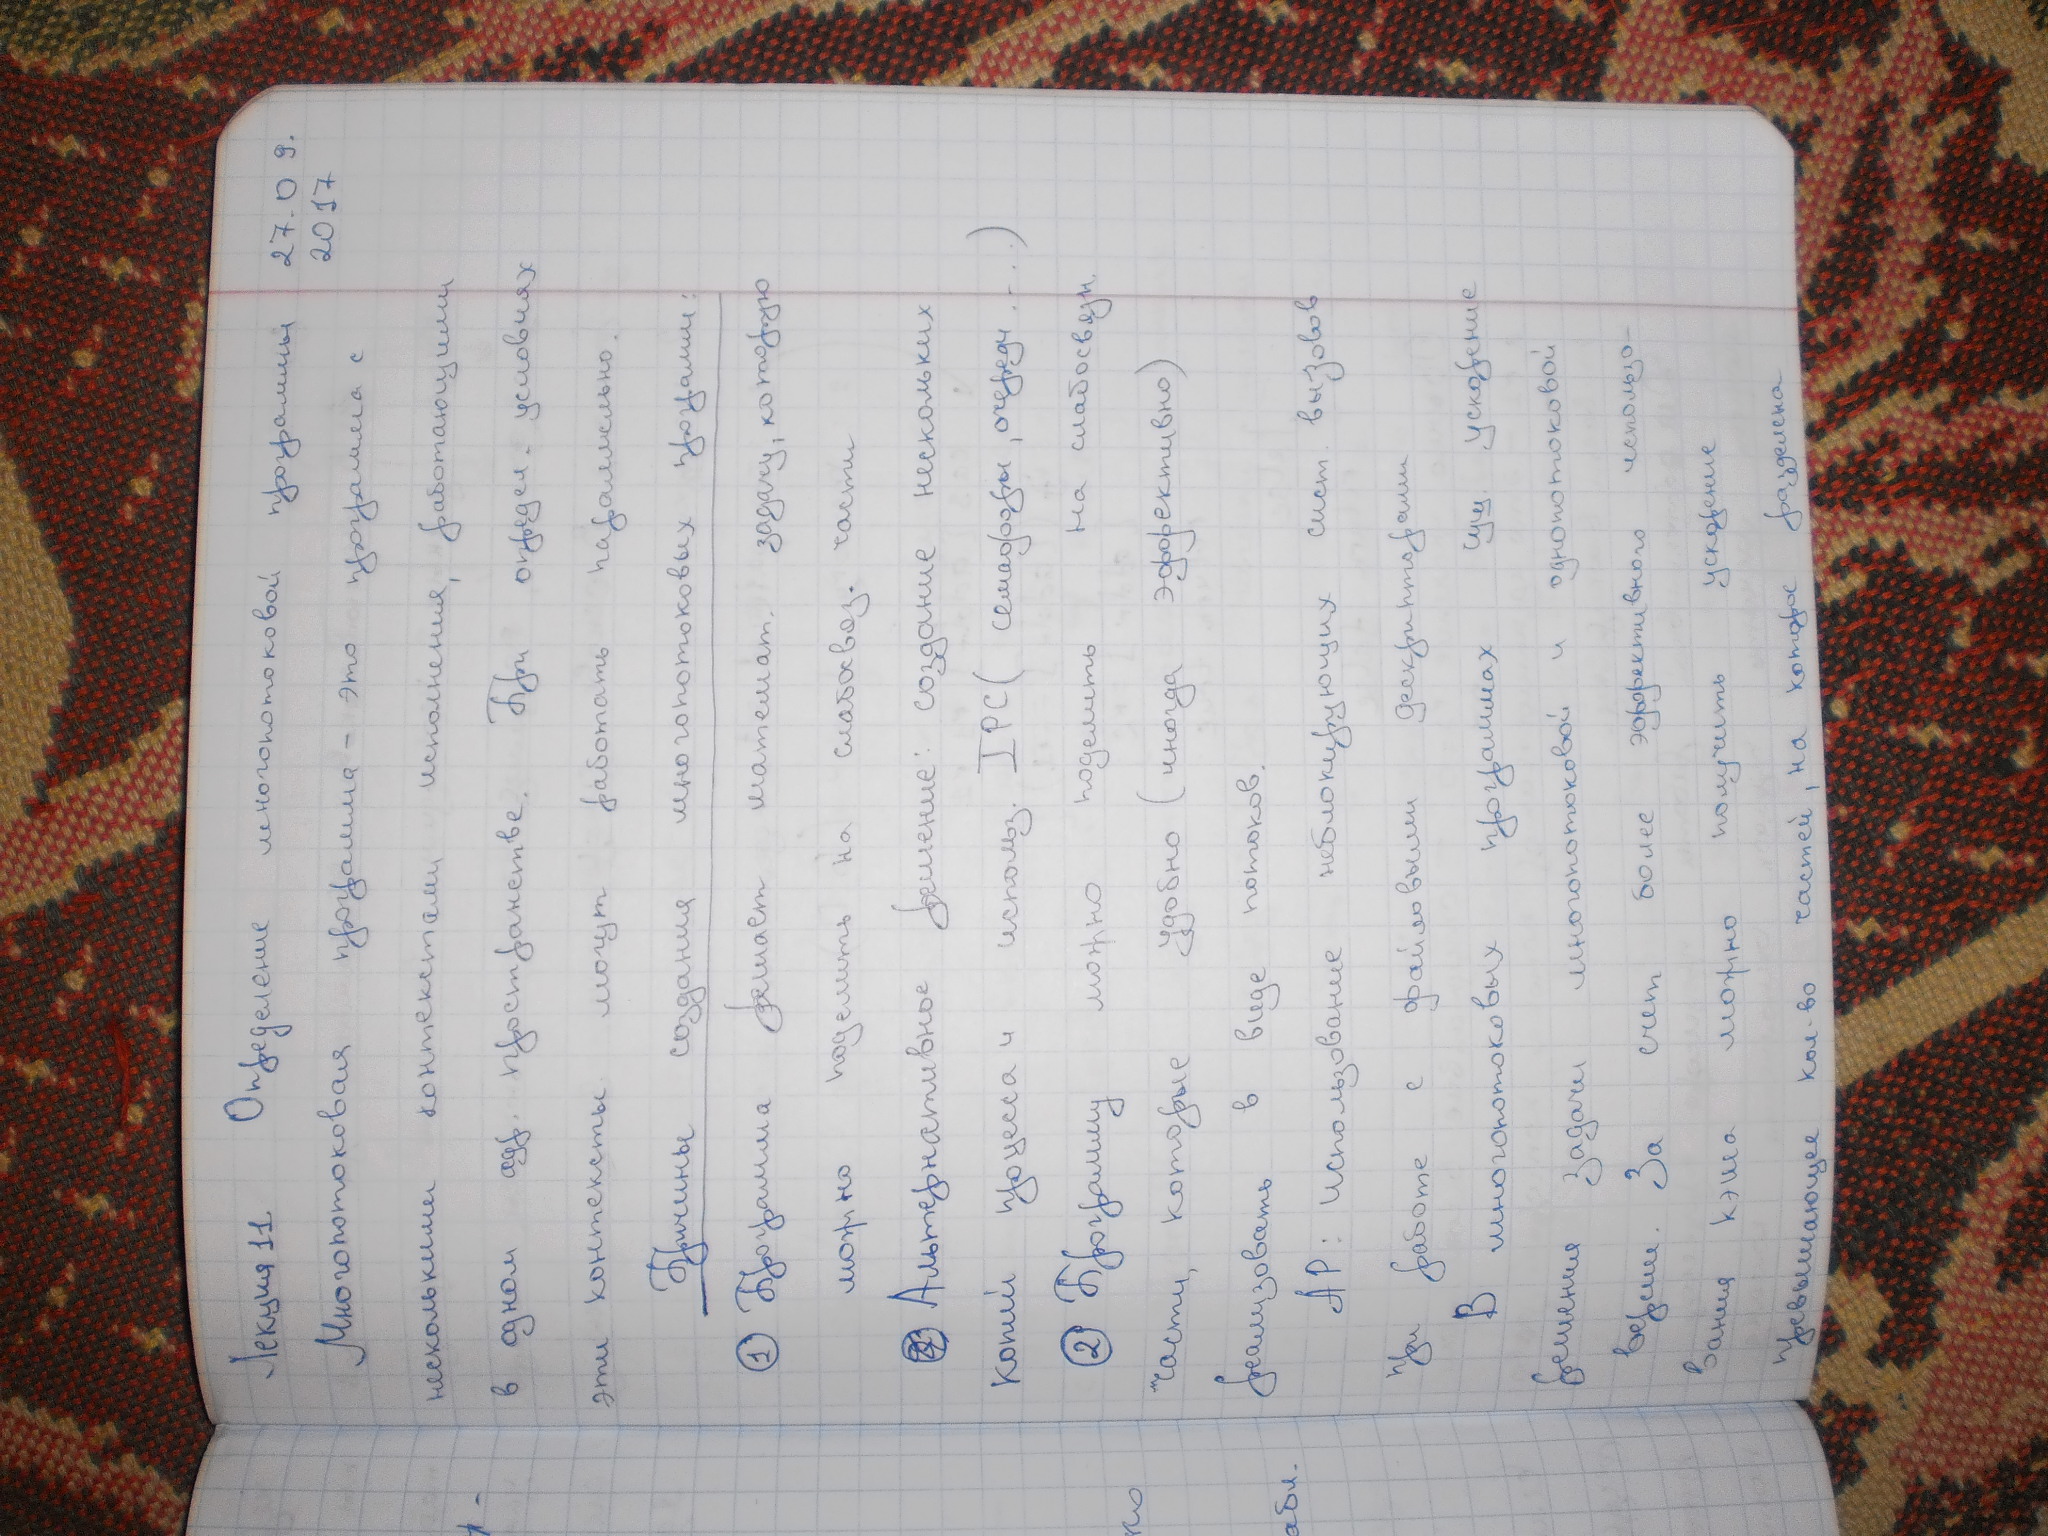 27.09.
2017
Лекция 11. Определение многопотоковой программы
Многопотоковая программа - это программа с
несколькими контекстами исполнения, работающими
в одном адр. пространстве. При определ. условиях
эти контексты могут работать параллельно.
Причины создания многопотоковых программ:
① Программа решает математ. задачу, которую
можно поделить на слабосвяз. части
Альтернативное решение: создание нескольких
копий процесса и использ. IPC (семафоры, очереди...)
② Программу можно поделить на слабосвязн.
части, которые удобно (иногда эффективно)
реализовать в виде потоков.
АР: Использование неблокирующих сист. вызовов
при работе с файловыми дескрипторами
В многопотоковых программах сущ. ускорение
решения задачи многопотоковой и однопотоковой
верси. За счет более эффективного использо-
вания кэша можно получить ускорение
превышающее кол-во частей, на которое разделена
ко
абл.